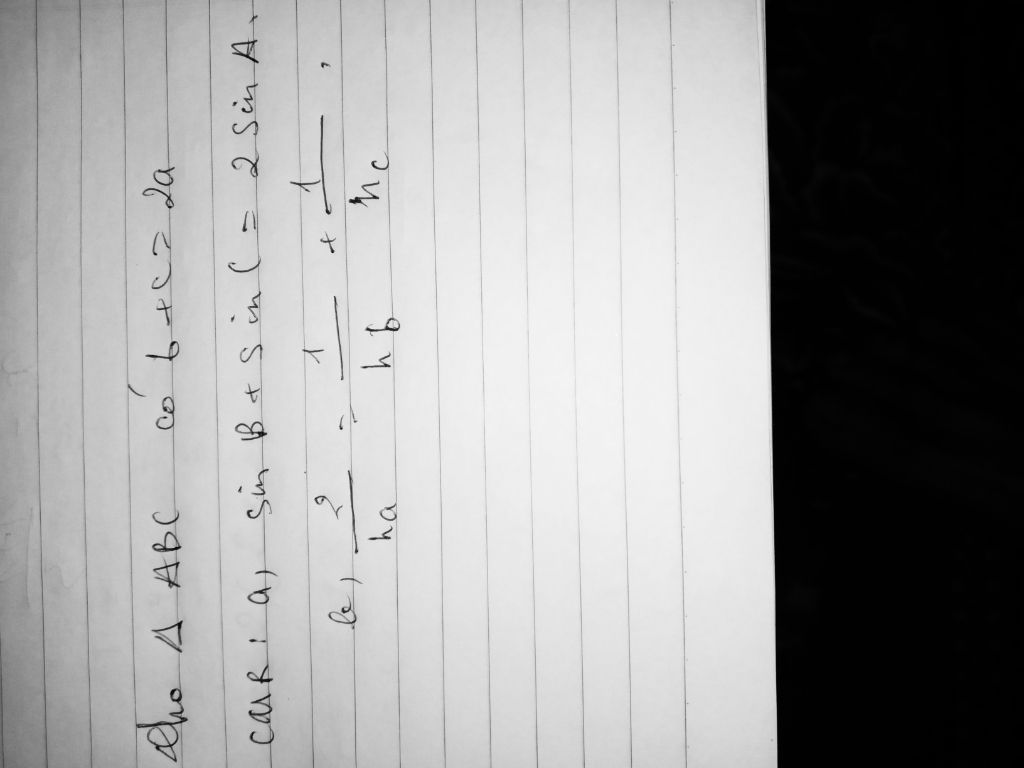 Cho Δ ABC có b + c = 2a
CMR : a, Sin B + Sin C = 2 Sin A.
b, 2/ha = 1/hb + 1/hc .